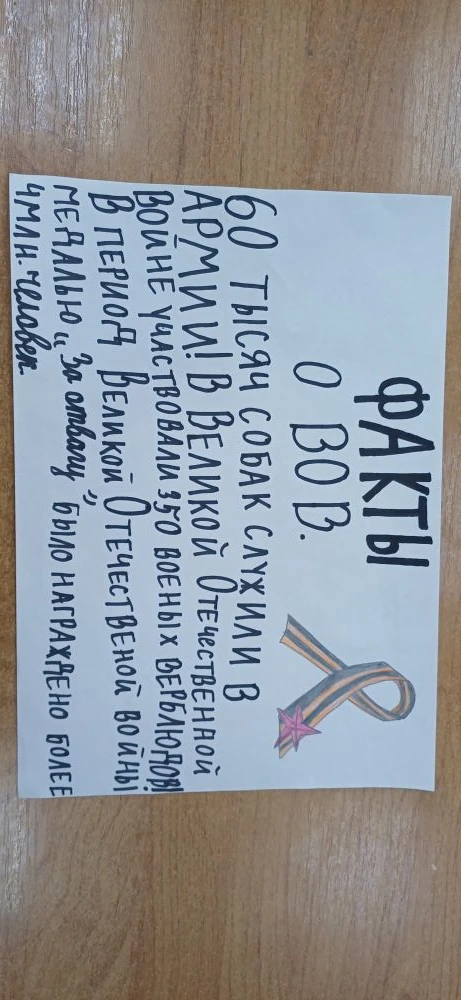 ФАКТЫ
О ВОВ.
60 ТЫСЯЧ СОБАК СЛУЖИЛИ В
АРМИИ! В ВЕЛИКОЙ ОТЕЧЕСТВЕННОЙ
ВОЙНЕ УЧАСТВОВАЛИ 350 ВОЕНЫХ ВЕРБЛЮДОВ!
В ПЕРИОД ВЕЛИКОЙ ОТЕЧЕСТВЕНОЙ ВОЙНЫ
МЕДАЛЬЮ „За отвагу” БЫЛО НАГРАЖДЕНО БОЛЕЕ
4МЛН. человек.